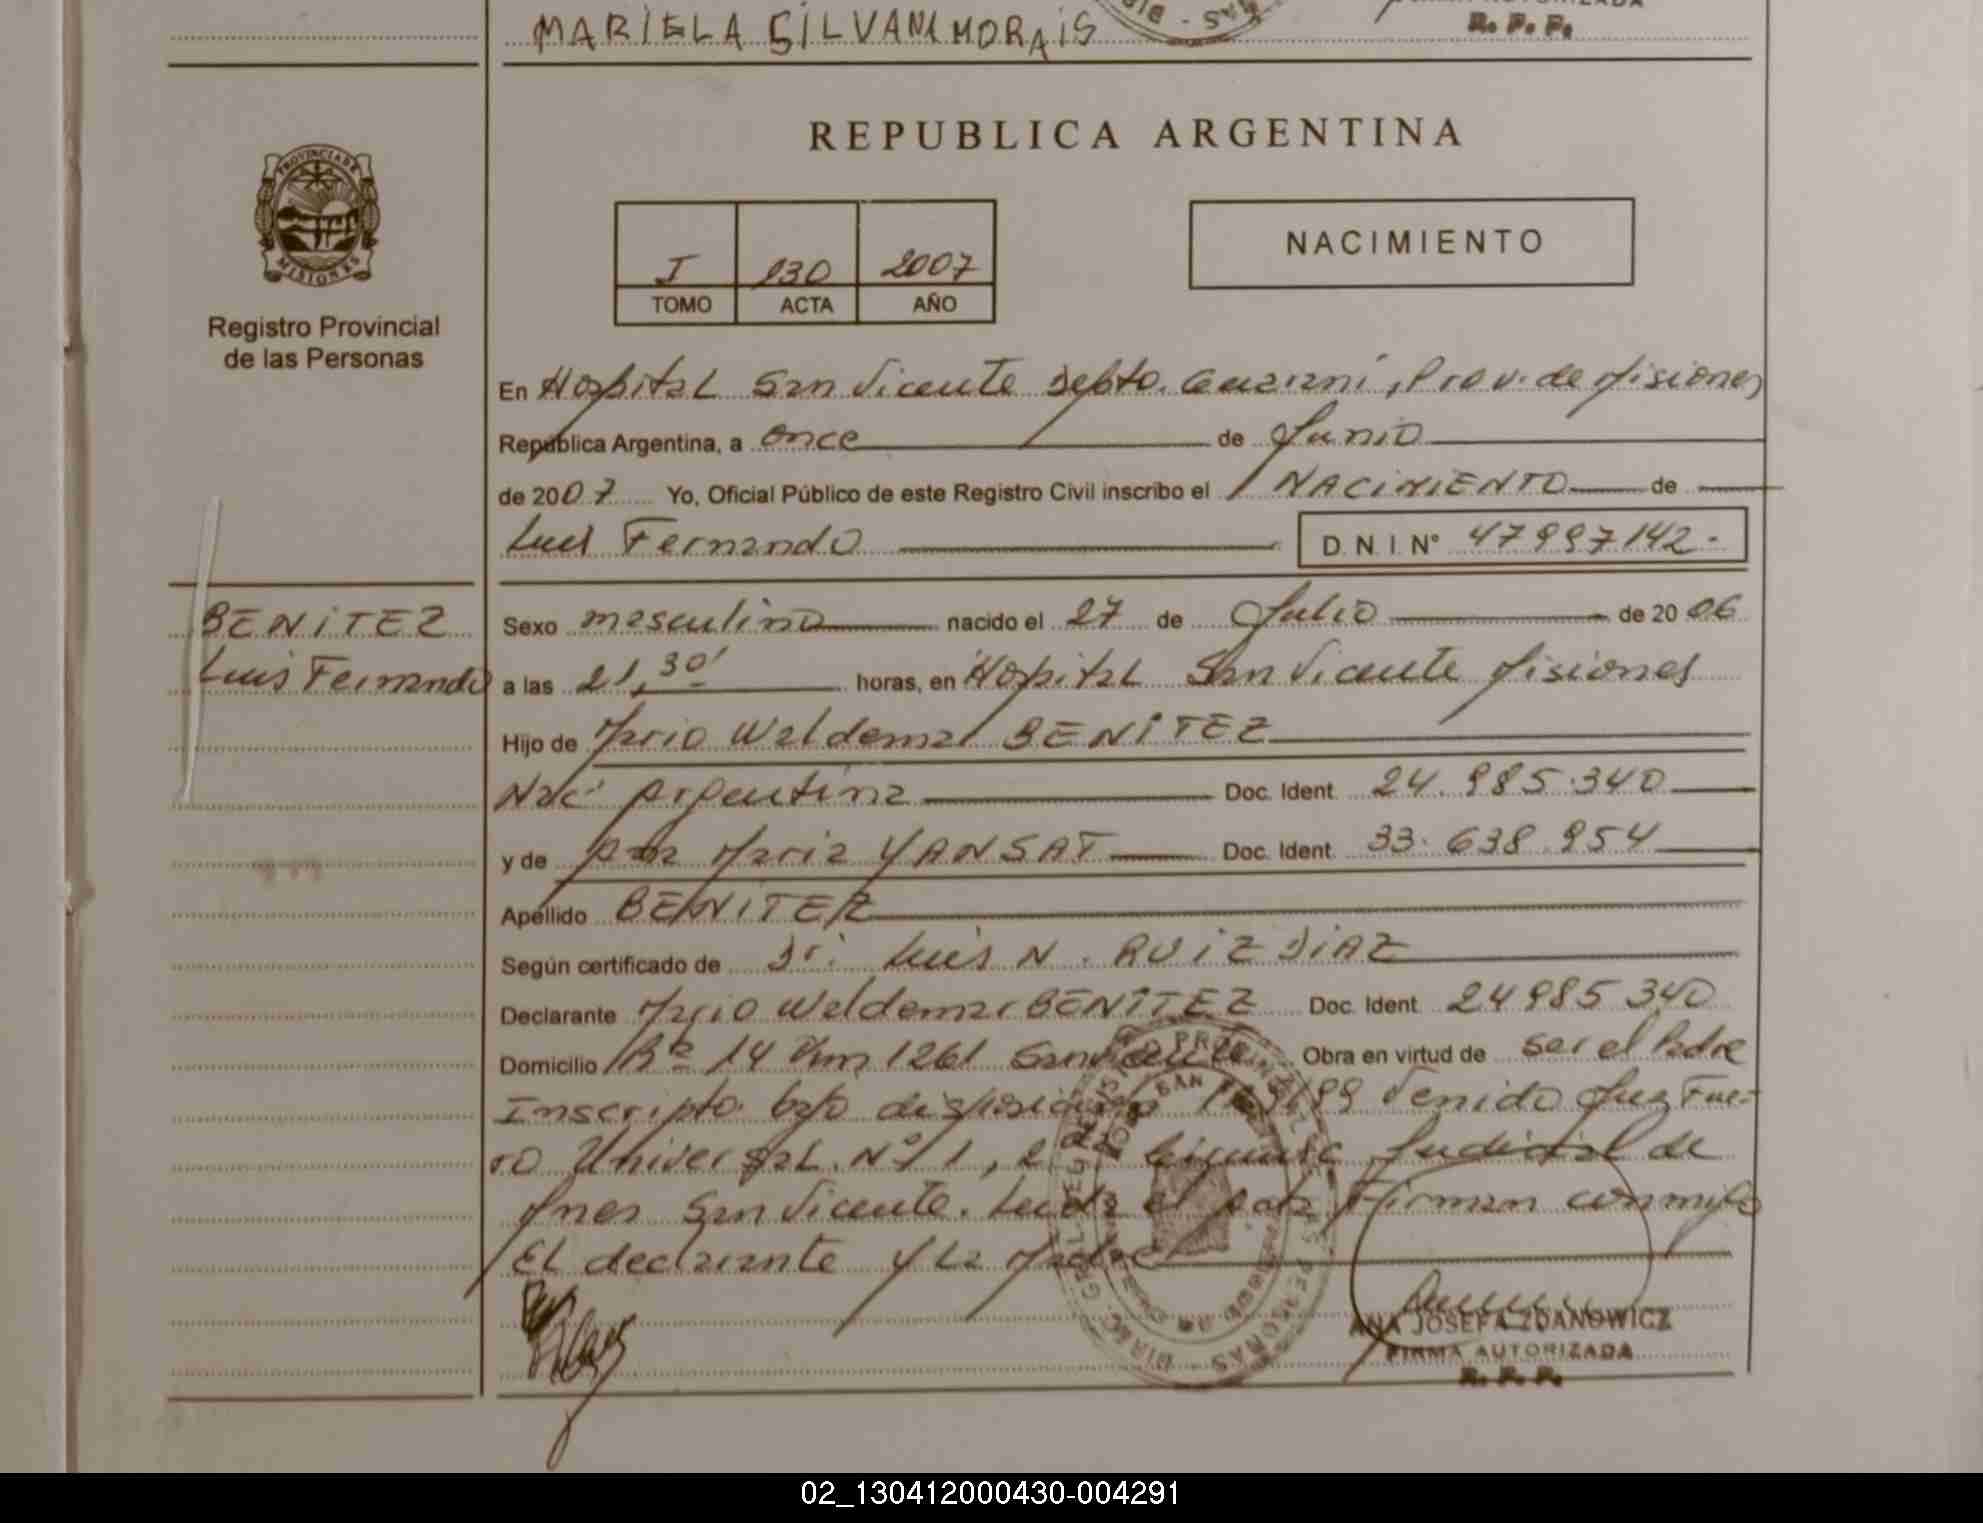 MARIELA SILVANA MORAIS
R. P. P.
REPUBLICA ARGENTINA
PROVINCIA DE
MISIONES
Registro Provincial
de las Personas
I 130 2007
TOMO ACTA AÑO
NACIMIENTO
En Hospital San Vicente Depto. Guaraní, Prov. de Misiones
Republica Argentina, a once de Junio
de 2007 Yo, Oficial Público de este Registro Civil inscribo el NACIMIENTO de
Luis Fernando D.N.I. N° 47997142.-
BENITEZ
Luis Fernando
Sexo masculino nacido el 27 de Julio de 2006
a las 21,30' horas, en Hospital San Vicente Misiones
Hijo de Mario Waldemar BENITEZ
Nac. Argentina Doc. Ident. 24.985.340
y de Ana Maria YANSAT Doc. Ident. 33.638.954
Apellido BENITEZ
Según certificado de Dr. Luis N. RUIZ DIAZ
Declarante Mario Waldemar BENITEZ Doc. Ident. 24985340
Domicilio Rta 14 Km 1261 San Vicente Obra en virtud de ser el Padre
Inscripto bajo disposición 199 Venido Juz Fue-
ro Universal N° 1, Judicial de
San Vicente. Leída el acta Firman conmigo
El declarante y La Madre
ANA JOSEFA ZDANOWICZ
FIRMA AUTORIZADA
R. P. P.
02_130412000430-004291